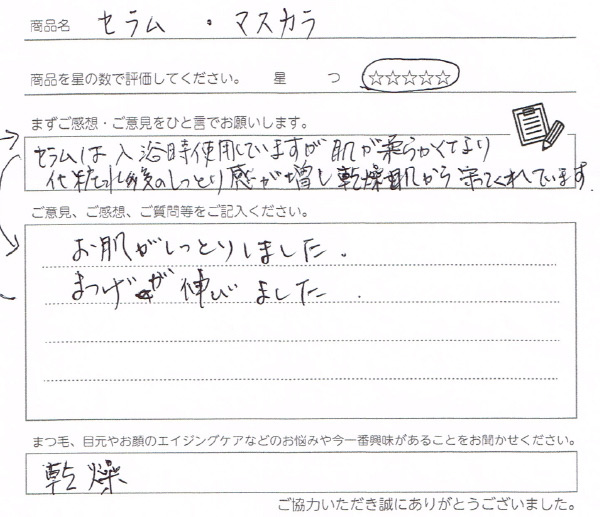 商品名 セラム ・ マスカラ
商品を星の数で評価してください。 星 つ ☆☆☆☆☆
まずご感想・ご意見をひと言でお願いします。
セラムは入浴時使用していますが肌が柔らかくなり
化粧水後のしっとり感が増し乾燥肌から守ってくれています.
ご意見、ご感想、ご質問等をご記入ください。
お肌がしっとりしました.
まつげが伸びました.
まつ毛、目元やお顔のエイジングケアなどのお悩みや今一番興味があることをお聞かせください。
乾燥
ご協力いただき誠にありがとうございました。